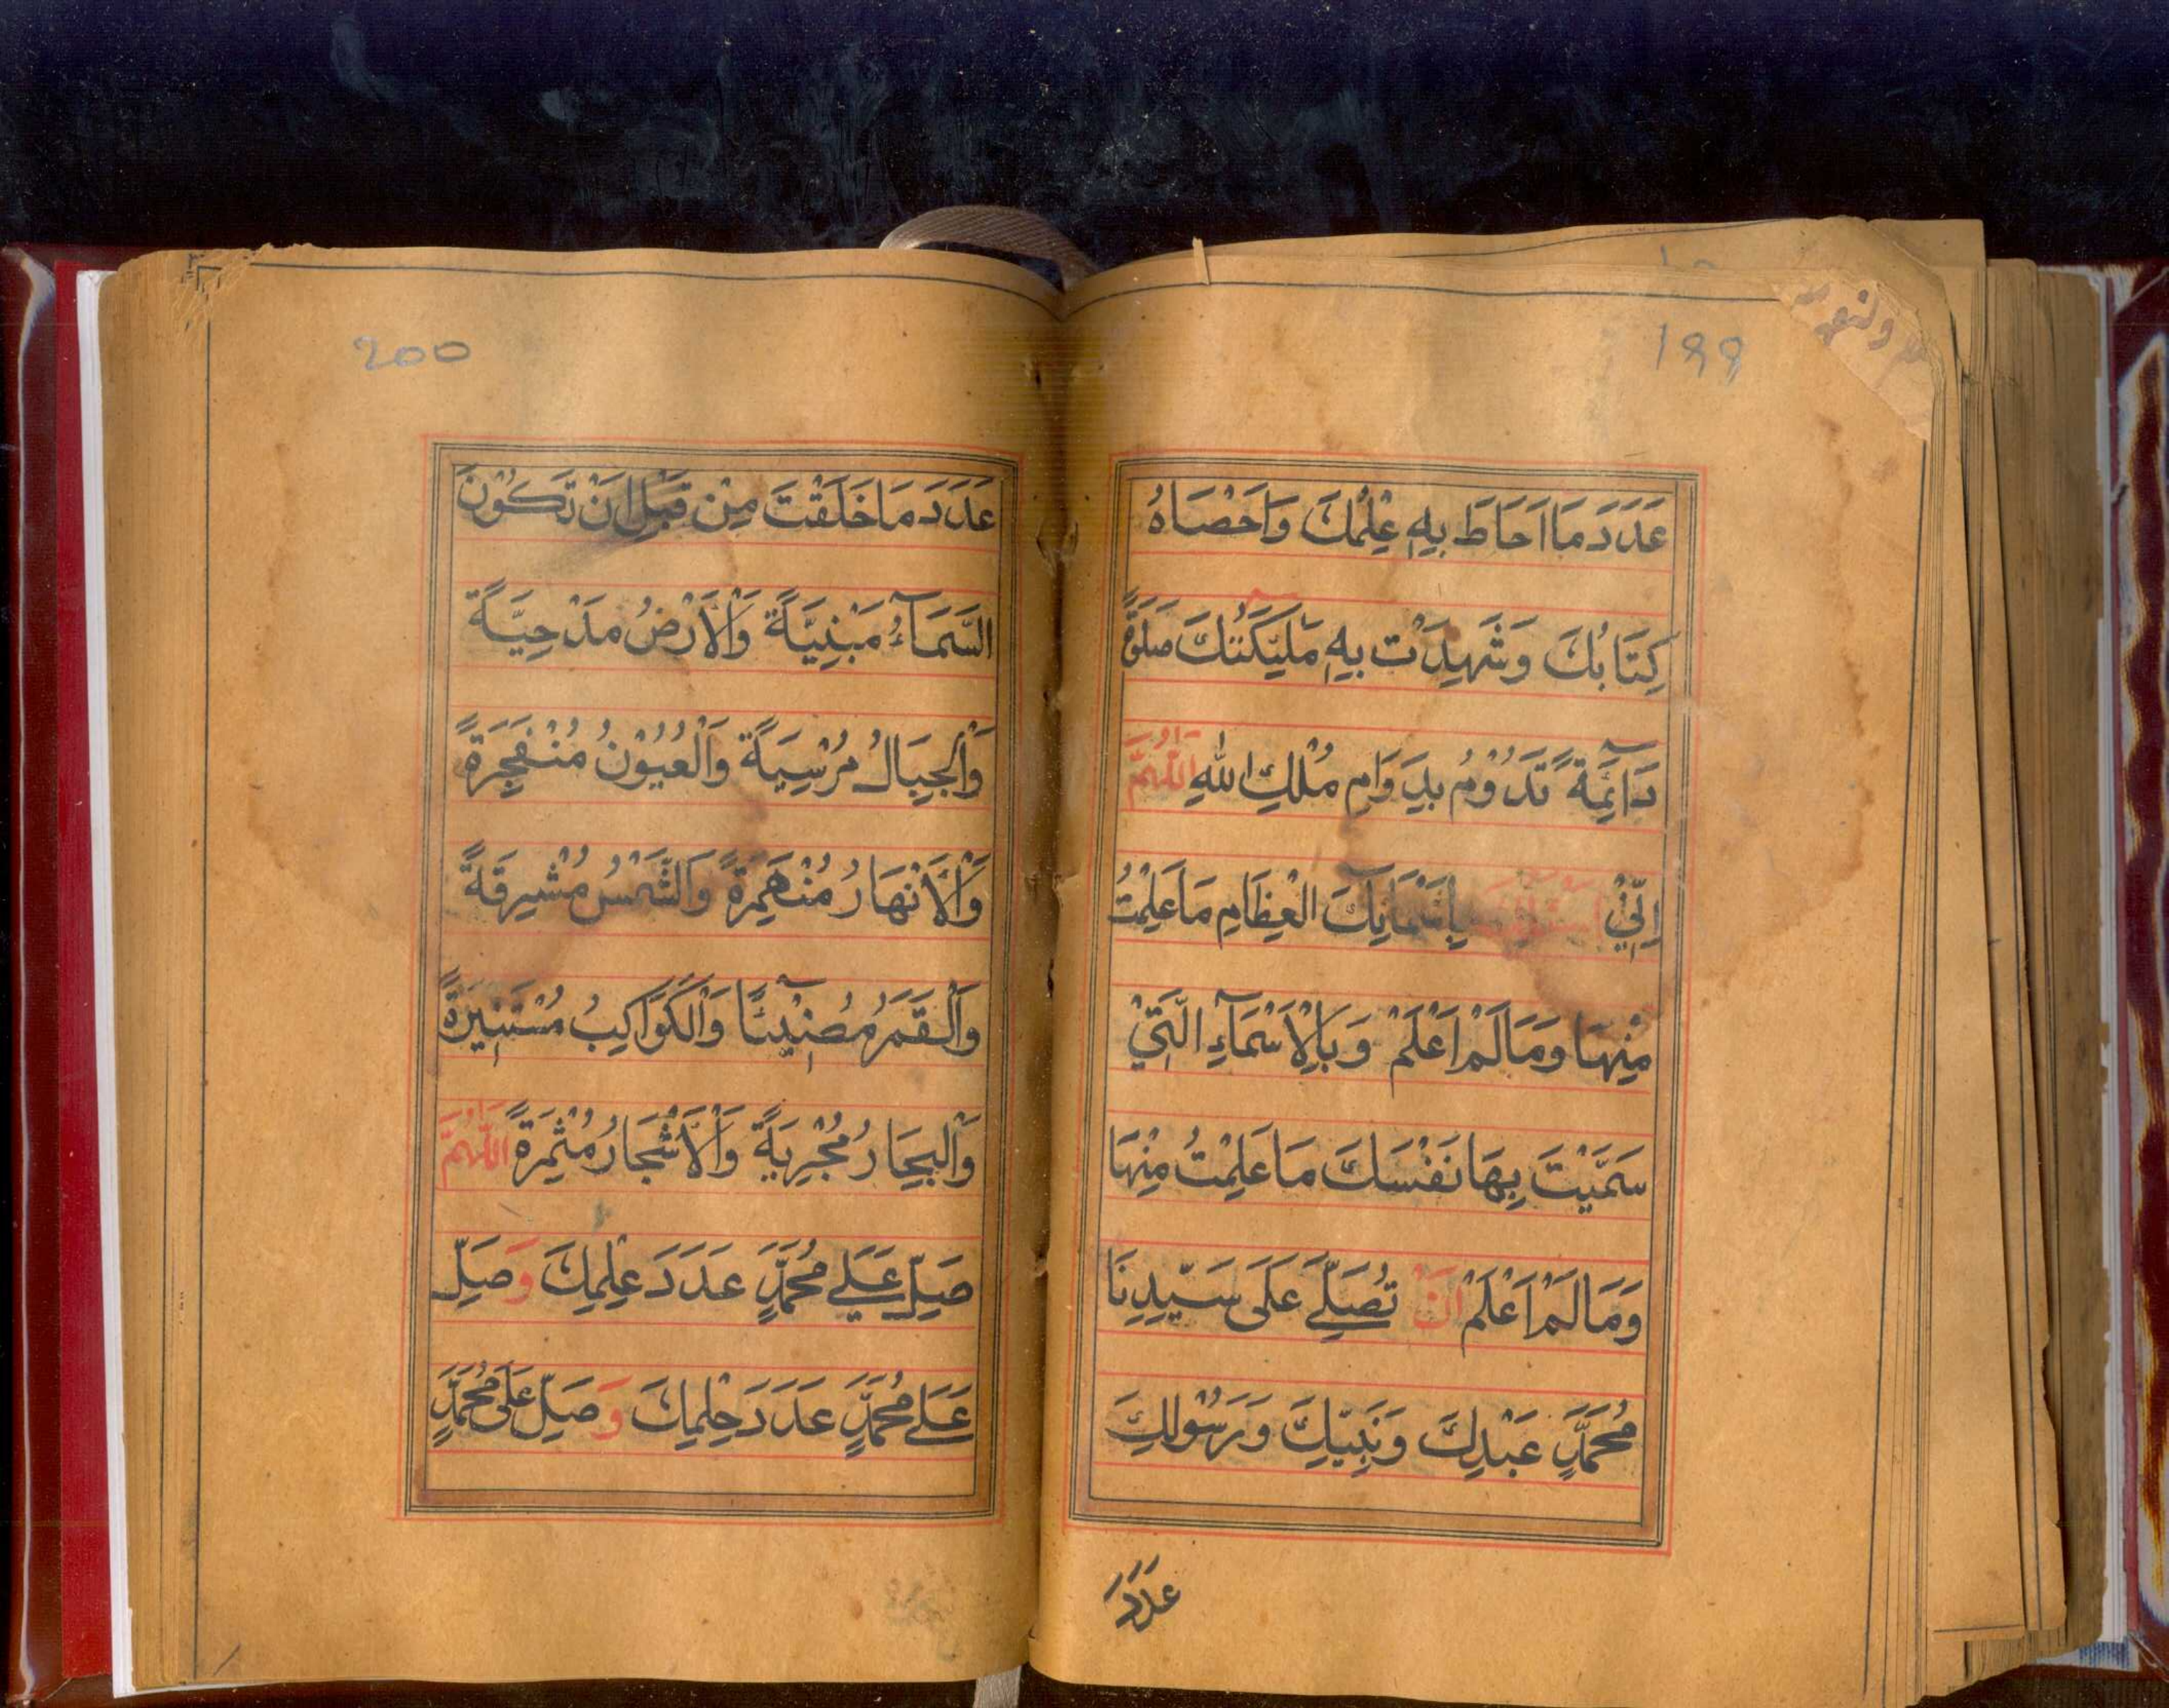 199
عَدَدَ مَا اَحَاطَ بِهٖ عِلْمُكَ وَاَحْصَاهُ
كِتَابُكَ وَشَهِدَتْ بِهٖ مَلٰٓئِكَتُكَ صَلٰوةً
دَآئِمَةً تَدُوْمُ بِدَوَامِ مُلْكِ اللّٰهِ اَللّٰهُمَّ
اِنِّيْ اَسْئَلُكَ بِاَسْمَآئِكَ الْعِظَامِ مَا عَلِمْتُ
مِنْهَا وَمَا لَمْ اَعْلَمْ وَبِالْاَسْمَآءِ الَّتِيْ
سَمَّيْتَ بِهَا نَفْسَكَ مَا عَلِمْتُ مِنْهَا
وَمَا لَمْ اَعْلَمْ اَنْ تُصَلِّيَ عَلَى سَيِّدِنَا
مُحَمَّدٍ عَبْدِكَ وَنَبِيِّكَ وَرَسُوْلِكَ
عَدَدَ
200
عَدَدَ مَا خَلَقْتَ مِنْ قَبْلِ اَنْ تَكُوْنَ
السَّمَآءُ مَبْنِيَّةً وَالْاَرْضُ مَدْحِيَّةً
وَالْجِبَالُ مُرْسِيَةً وَالْعُيُوْنُ مُنْفَجِرَةً
وَالْاَنْهَارُ مُنْهَمِرَةً وَالشَّمْسُ مُشْرِقَةً
وَالْقَمَرُ مُضِيْٓئًا وَالْكَوَاكِبُ مُسْتَنِيْرَةً
وَالْبِحَارُ مُجْرِيَةً وَالْاَشْجَارُ مُثْمِرَةً اَللّٰهُمَّ
صَلِّ عَلٰى مُحَمَّدٍ عَدَدَ عِلْمِكَ وَصَلِّ
عَلٰى مُحَمَّدٍ عَدَدَ حِلْمِكَ وَصَلِّ عَلٰى مُحَمَّدٍ